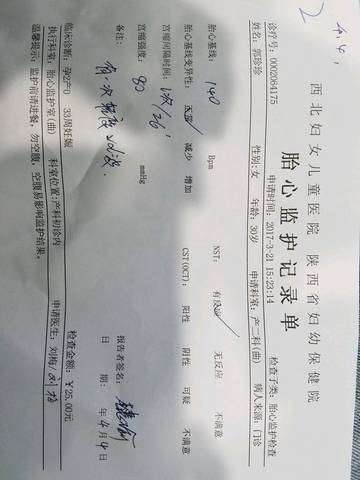 2 4.4.
西北妇女儿童医院 陕西省妇幼保健院
胎心监护记录单
诊疗号: 0002064175 申请时间: 2017-3-21 15:23:14 检查子类: 胎心监护检查
姓名: 郭珍珍 性别:女 年龄: 30岁 申请科室: 产二科(曲) 病人来源: 门诊
胎心基线: 140 Bpm NST: 有反应 无反应 不满意
胎心基线变异性: 正常 减少 增加 CST(OCT): 阳性 阴性 可疑 不满意
宫缩间隔时间: 1次/2'
宫缩强度: 80 mmHg
备注: 有一次轻度心波. 报告者签名:
日 期: 年 4 月 4 日
临床诊断: 孕2产0 33周妊娠 检查金额: ￥25.00元
执行科室: 胎心监护室(曲) 科室位置:产科初诊内 申请医生: 刘梅/
温馨提示: 监护前请进餐, 勿空腹, 空腹易影响监护结果。